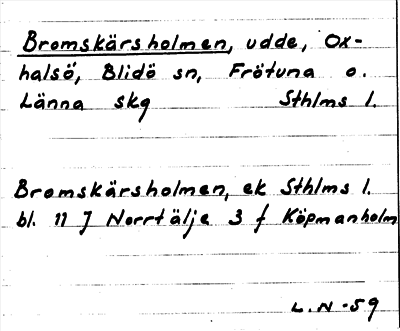 Bromskärsholmen, udde, Ox-
halsö, Blidö sn, Frötuna o.
Länna skg Sthlms l.
Bromskärsholmen, ek Sthlms l.
bl. 11 J Norrtälje 3 f Köpmanholm
L.N -59